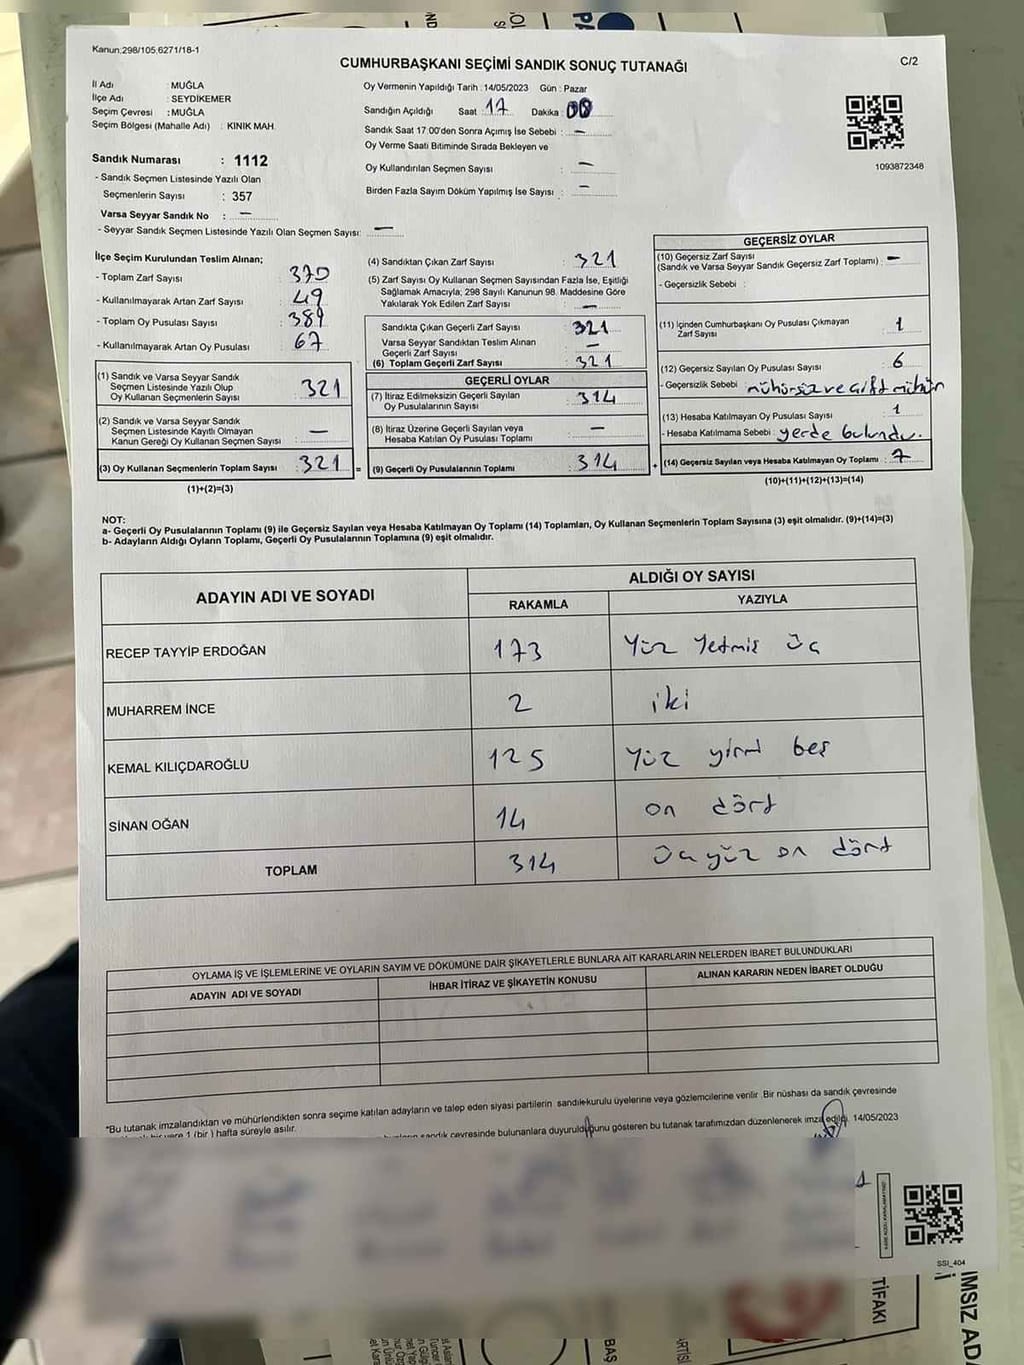 Kanun:298/105,6271/18-1
C/2
CUMHURBAŞKANI SEÇİMİ SANDIK SONUÇ TUTANAĞI
İl Adı : MUĞLA
İlçe Adı : SEYDİKEMER
Seçim Çevresi : MUĞLA
Seçim Bölgesi (Mahalle Adı) : KINIK MAH.
Sandık Numarası : 1112
- Sandık Seçmen Listesinde Yazılı Olan
Seçmenlerin Sayısı : 357
Varsa Seyyar Sandık No : —
- Seyyar Sandık Seçmen Listesinde Yazılı Olan Seçmen Sayısı: —
Oy Vermenin Yapıldığı Tarih : 14/05/2023 Gün : Pazar
Sandığın Açıldığı Saat : 17 Dakika : 00
Sandık Saat 17:00'den Sonra Açımış İse Sebebi : —
Oy Verme Saati Bitiminde Sırada Bekleyen ve
Oy Kullandırılan Seçmen Sayısı : —
Birden Fazla Sayım Döküm Yapılmış İse Sayısı : —
1093872348
İlçe Seçim Kurulundan Teslim Alınan;
- Toplam Zarf Sayısı : 370
- Kullanılmayarak Artan Zarf Sayısı : 49
- Toplam Oy Pusulası Sayısı : 389
- Kullanılmayarak Artan Oy Pusulası : 67
(1) Sandık ve Varsa Seyyar Sandık
Seçmen Listesinde Yazılı Olup
Oy Kullanan Seçmenlerin Sayısı : 321
(2) Sandık ve Varsa Seyyar Sandık
Seçmen Listesinde Kayıtlı Olmayan
Kanun Gereği Oy Kullanan Seçmen Sayısı : —
(3) Oy Kullanan Seçmenlerin Toplam Sayısı : 321 =
(1)+(2)=(3)
(4) Sandıktan Çıkan Zarf Sayısı : 321
(5) Zarf Sayısı Oy Kullanan Seçmen Sayısından Fazla İse, Eşitliği
Sağlamak Amacıyla; 298 Sayılı Kanunun 98. Maddesine Göre
Yakılarak Yok Edilen Zarf Sayısı : —
Sandıkta Çıkan Geçerli Zarf Sayısı : 321
Varsa Seyyar Sandıktan Teslim Alınan
Geçerli Zarf Sayısı : —
(6) Toplam Geçerli Zarf Sayısı : 321
GEÇERLİ OYLAR
(7) İtiraz Edilmeksizin Geçerli Sayılan
Oy Pusulalarının Sayısı : 314
(8) İtiraz Üzerine Geçerli Sayılan veya
Hesaba Katılan Oy Pusulası Toplamı : —
(9) Geçerli Oy Pusulalarının Toplamı : 314 +
GEÇERSİZ OYLAR
(10) Geçersiz Zarf Sayısı
(Sandık ve Varsa Seyyar Sandık Geçersiz Zarf Toplamı) : —
- Geçersizlik Sebebi :
(11) İçinden Cumhurbaşkanı Oy Pusulası Çıkmayan
Zarf Sayısı : 1
(12) Geçersiz Sayılan Oy Pusulası Sayısı : 6
- Geçersizlik Sebebi : mühürsüz ve çift mühür
(13) Hesaba Katılmayan Oy Pusulası Sayısı : 1
- Hesaba Katılmama Sebebi : yerde bulundu.
(14) Geçersiz Sayılan veya Hesaba Katılmayan Oy Toplamı : 7
(10)+(11)+(12)+(13)=(14)
NOT:
a- Geçerli Oy Pusulalarının Toplamı (9) ile Geçersiz Sayılan veya Hesaba Katılmayan Oy Toplamı (14) Toplamları, Oy Kullanan Seçmenlerin Toplam Sayısına (3) eşit olmalıdır. (9)+(14)=(3)
b- Adayların Aldığı Oyların Toplamı, Geçerli Oy Pusulalarının Toplamına (9) eşit olmalıdır.
ADAYIN ADI VE SOYADI
ALDIĞI OY SAYISI
RAKAMLA YAZIYLA
RECEP TAYYİP ERDOĞAN 173 Yüz Yetmiş üç
MUHARREM İNCE 2 iki
KEMAL KILIÇDAROĞLU 125 Yüz yirmi beş
SİNAN OĞAN 14 on dört
TOPLAM 314 üçyüz on dört
OYLAMA İŞ VE İŞLEMLERİNE VE OYLARIN SAYIM VE DÖKÜMÜNE DAİR ŞİKAYETLERLE BUNLARA AİT KARARLARIN NELERDEN İBARET BULUNDUKLARI
ADAYIN ADI VE SOYADI İHBAR İTİRAZ VE ŞİKAYETİN KONUSU ALINAN KARARIN NEDEN İBARET OLDUĞU
"Bu tutanak imzalandıktan ve mühürlendikten sonra seçime katılan adayların ve talep eden siyasi partilerin sandık kurulu üyelerine veya gözlemcilerine verilir. Bir nüshası da sandık çevresinde
yere 1 (bir) hafta süreyle asılır.
sandık çevresinde bulunanlara duyurulduğunu gösteren bu tutanak tarafımızdan düzenlenerek imza edildi. 14/05/2023
SSI_404
TİFAKI
IMSIZ AD
BAŞ